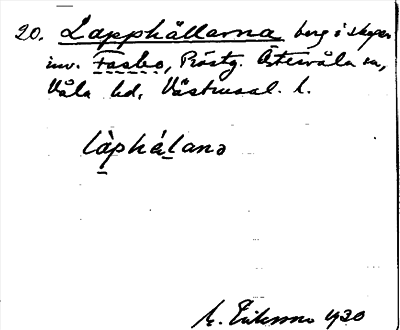 20. Lapphällarna berg i skogen
inv. Fasbo, Röstg. Östervåla sn,
Våla hd, Västmanl. l.
làphá̱lanə
M. Eriksson 1930